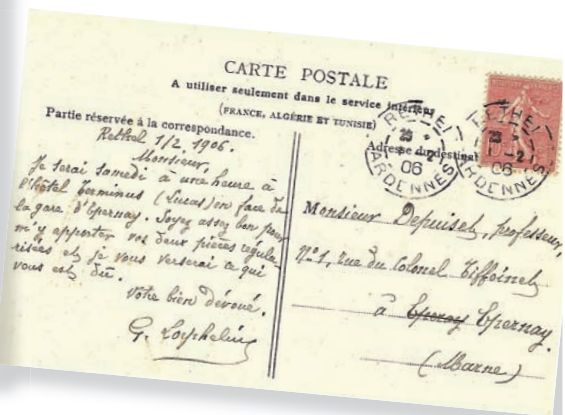 CARTE POSTALE
A utiliser seulement dans le service intérieur
(FRANCE, ALGÉRIE ET TUNISIE)
Partie réservée à la correspondance.
Adresse du destinat
RETHEL
1-2
06
ARDENNES
RETHEL
-2
06
ARDENNES
Rethel 1/2 1906.
Monsieur,
Je serai samedi à une heure à
l'hôtel Terminus (Lucas) en face de
la gare d'Epernay. Soyez assez bon pour
m'y apporter vos deux pièces régula-
risées et je vous verserai ce qui
vous est dû.
Votre bien dévoué.
G.
Monsieur Depuiset, professeur,
N° 1, rue du Colonel
à Epernay Epernay.
(Marne)